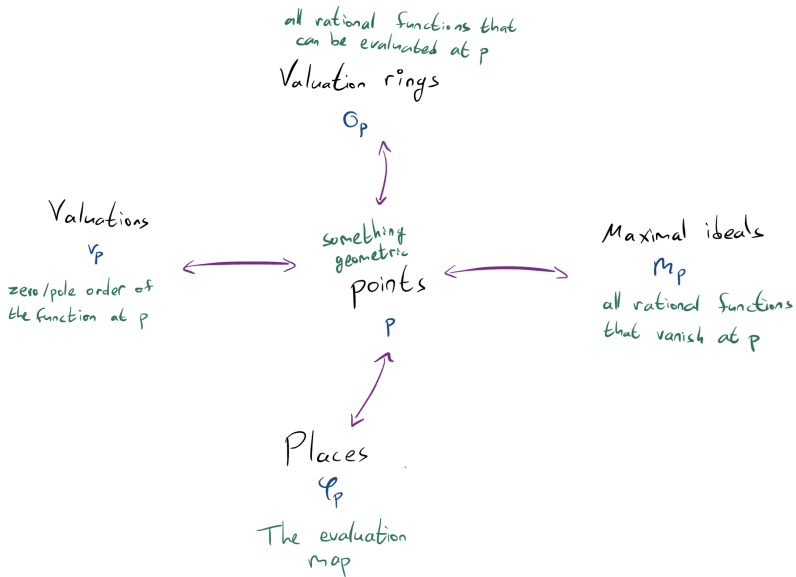 all rational functions that
can be evaluated at p
Valuation rings
O_p
Valuations
v_p
zero/pole order of
the function at p
something
geometric
points
p
Maximal ideals
m_p
all rational functions
that vanish at p
Places
φ_p
The evaluation
map